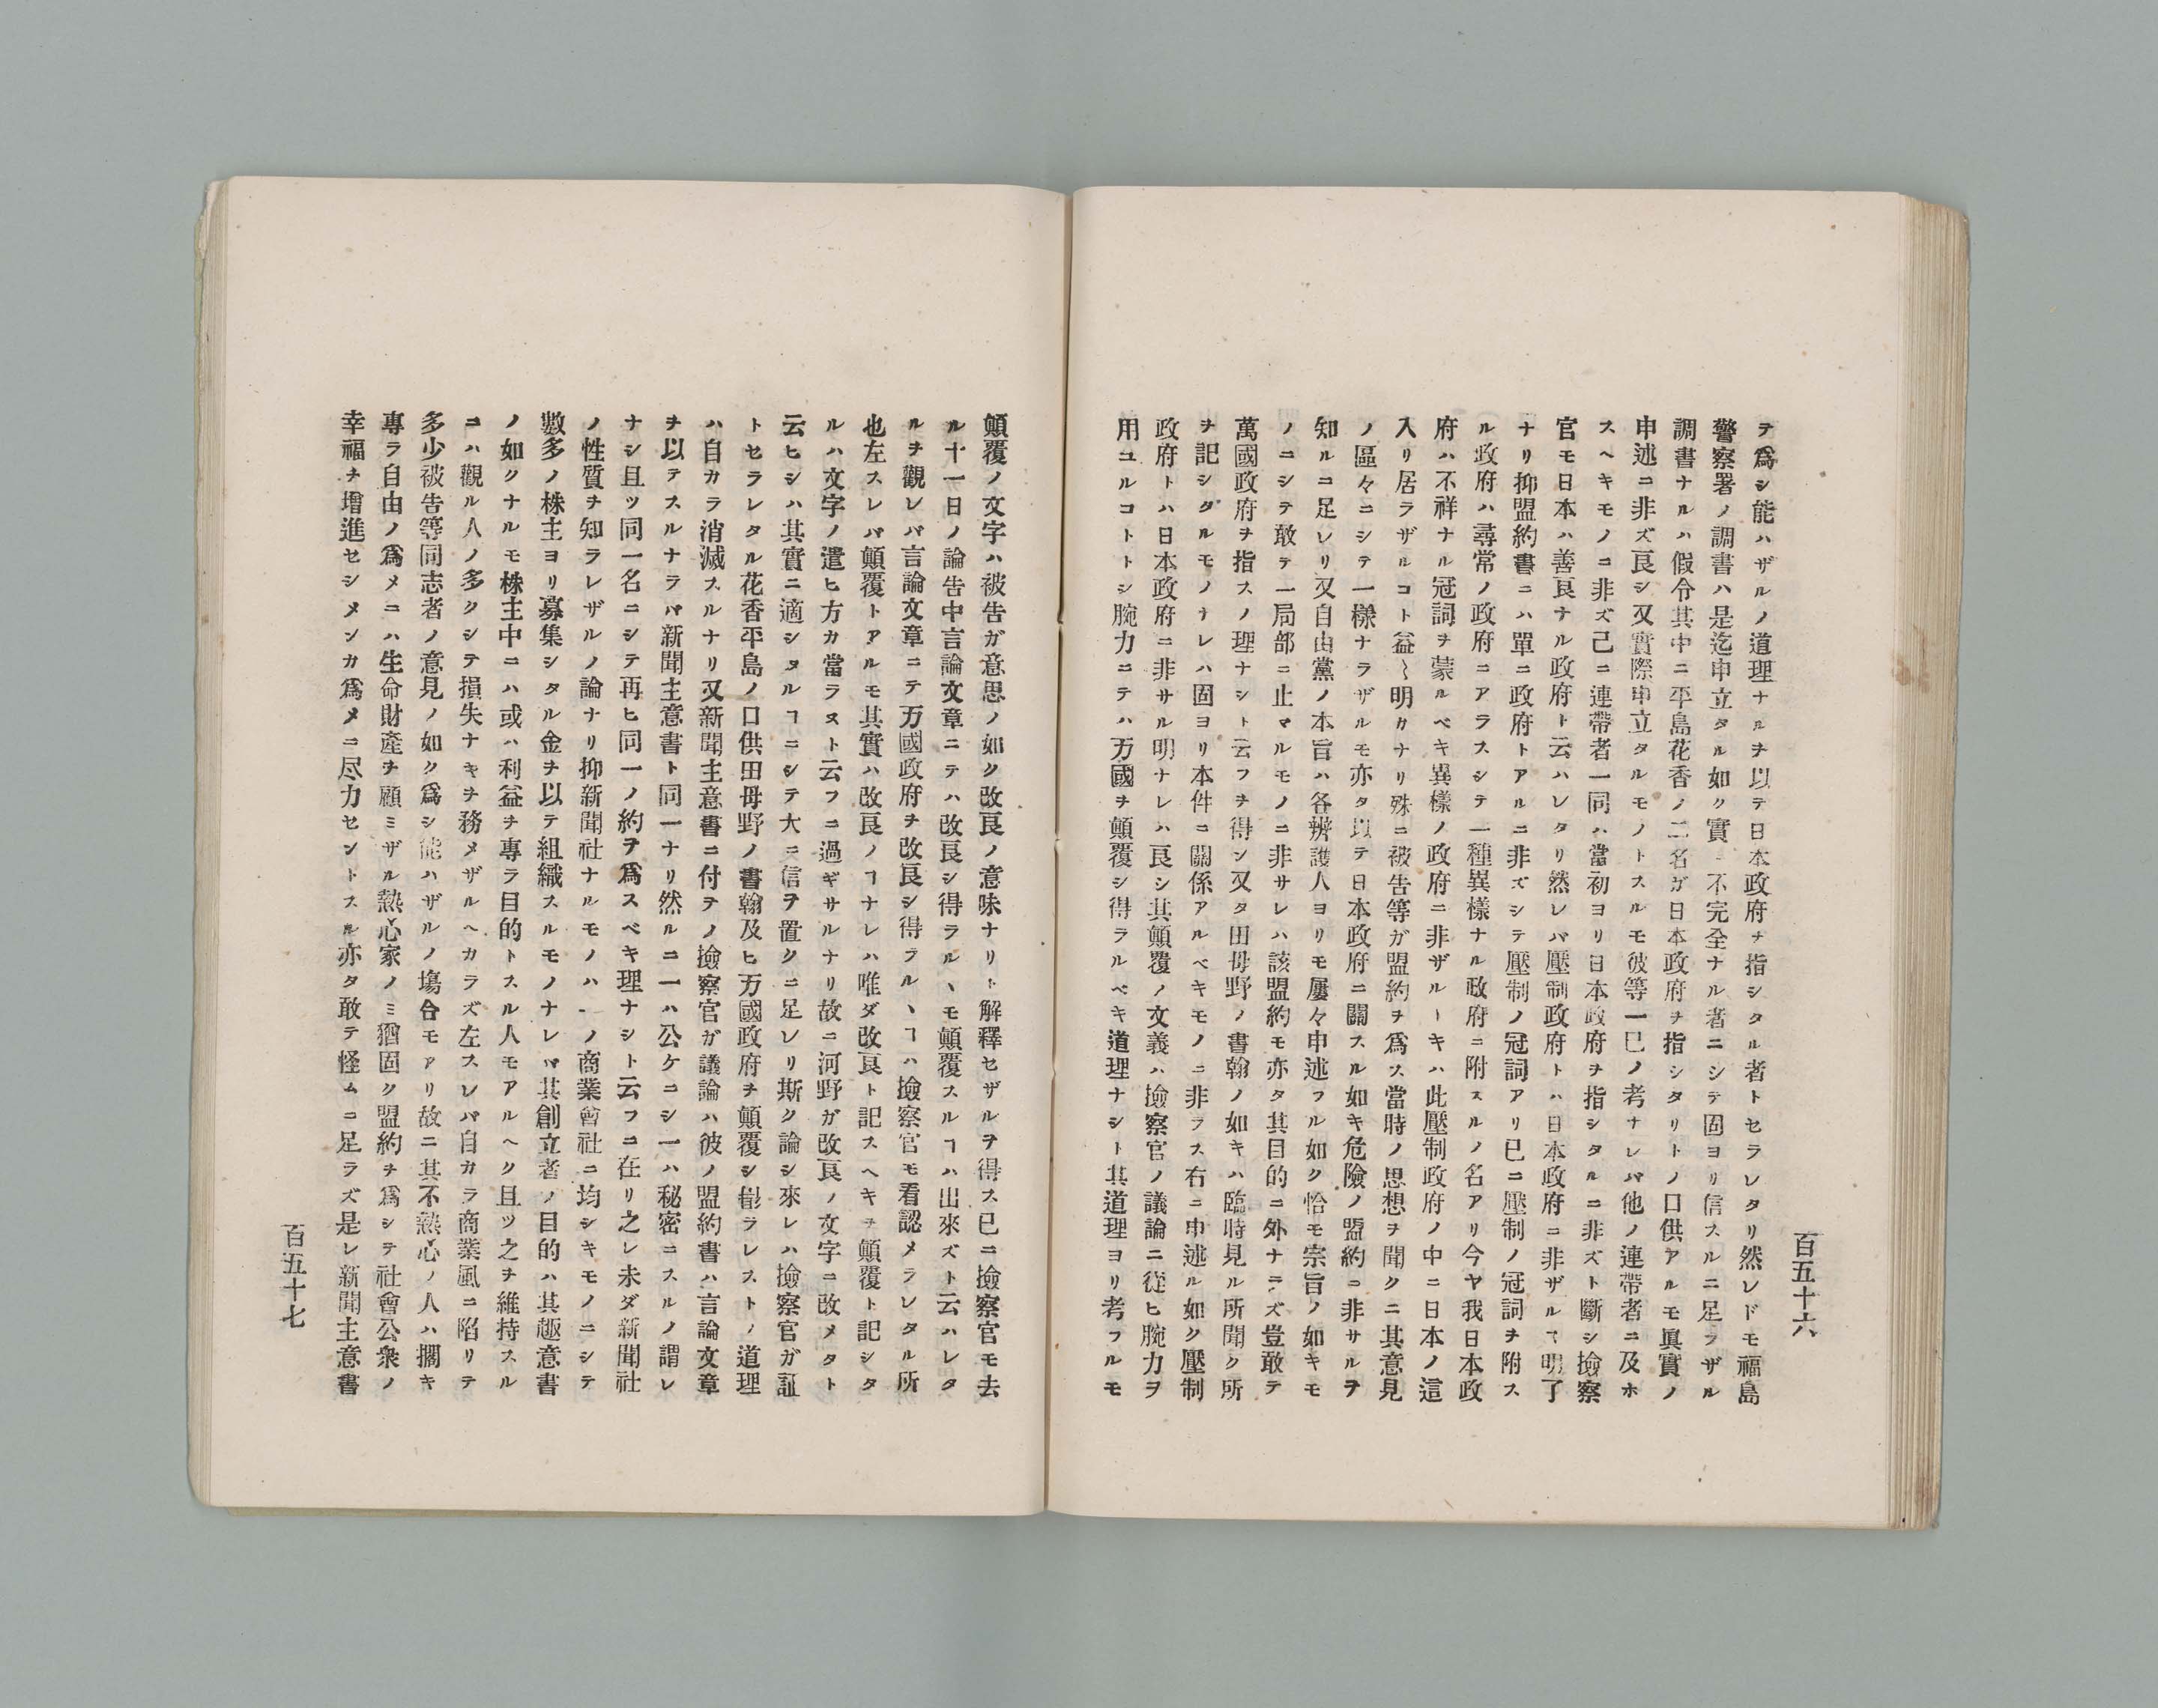 百五十六
テ爲シ能ハザルノ道理ナルヲ以テ日本政府ヲ指シタル者トセラレタリ然レドモ福島
警察署ノ調書ハ是迄申立タル如ク實ニ不完全ナル者ニシテ固ヨリ信スルニ足ラザル
調書ナルハ假令其中ニ平島花香ノ二名ガ日本政府ヲ指シタリトノ口供アルモ眞實ノ
申述ニ非ズ良シ又實際申立タルモノトスルモ彼等一己ノ考ナレバ他ノ連帶者ニ及ホ
スヘキモノニ非ズ己ニ連帶者一同ハ當初ヨリ日本政府ヲ指シタルニ非ズト斷シ撿察
官モ日本ハ善良ナル政府ト云ハレタリ然レバ壓制政府トハ日本政府ニ非ザルヿ明了
ナリ抑盟約書ニハ單ニ政府トアルニ非ズシテ壓制ノ冠詞アリ已ニ壓制ノ冠詞ヲ附ス
ル政府ハ尋常ノ政府ニアラスシテ一種異樣ナル政府ニ附スルノ名アリ今ヤ我日本政
府ハ不祥ナル冠詞ヲ蒙ルベキ異樣ノ政府ニ非ザルーキハ此壓制政府ノ中ニ日本ノ這
入リ居ラザルコト益〻明カナリ殊ニ被告等ガ盟約ヲ爲ス當時ノ思想ヲ聞クニ其意見
ノ區々ニシテ一樣ナラザルモ亦タ以テ日本政府ニ關スル如キ危險ノ盟約ニ非サルヲ
知ルニ足レリ又自由黨ノ本旨ハ各辨護人ヨリモ屢々申述フル如ク恰モ宗旨ノ如キモ
ノニシテ敢テ一局部ニ止マルモノニ非サレハ該盟約モ亦タ其目的ニ外ナラズ豈敢テ
萬國政府ヲ指スノ理ナシト云フヲ得ン又タ田母野ノ書翰ノ如キハ臨時見ル所聞ク所
ヲ記シタルモノナレハ固ヨリ本件ニ關係アルベキモノニ非ラス右ニ申述ル如ク壓制
政府トハ日本政府ニ非サル明ナレハ良シ其顚覆ノ文義ハ撿察官ノ議論ニ從ヒ腕力ヲ
用ユルコトトシ腕力ニテハ万國ヲ顚覆シ得ラルベキ道理ナシト其道理ヨリ考フルモ
顚覆ノ文字ハ被告ガ意思ノ如ク改良ノ意味ナリト解釋セザルヲ得ス已ニ撿察官モ去
ル十一日ノ論告中言論文章ニテハ改良シ得ラルヽモ顚覆スルヿハ出來ズト云ハレタ
ルヲ觀レバ言論文章ニテ万國政府ヲ改良シ得ラルヽヿハ撿察官モ看認メラレタル所
也左スレバ顚覆トアルモ其實ハ改良ノヿナレハ唯ダ改良ト記スヘキヲ顚覆ト記シタ
ルハ文字ノ遣ヒ方カ當ラヌト云フニ過ギサルナリ故ニ河野ガ改良ノ文字ニ改メタト
云ヒシハ其實ニ適シタルヿニシテ大ニ信ヲ置クニ足レリ斯ク論シ來レハ撿察官ガ証
トセラレタル花香平島ノ口供田母野ノ書翰及ヒ万國政府ヲ顚覆シ得ラレストノ道理
ハ自カラ消滅スルナリ又新聞主意書ニ付テノ撿察官ガ議論ハ彼ノ盟約書ハ言論文章
ヲ以テスルナラバ新聞主意書ト同一ナリ然ルニ一ハ公ケニシ一ハ秘密ニスルノ謂レ
ナシ且ツ同一名ニシテ再ヒ同一ノ約ヲ爲スベキ理ナシト云フニ在リ之レ未ダ新聞社
ノ性質ヲ知ラレザルノ論ナリ抑新聞社ナルモノハ一ノ商業會社ニ均シキモノニシテ
數多ノ株主ヨリ募集シタル金ヲ以テ組織スルモノナレバ其創立者ノ目的ハ其趣意書
ノ如クナルモ株主中ニハ或ハ利益ヲ專ラ目的トスル人モアルヘク且ツ之ヲ維持スル
ニハ觀ル人ノ多クシテ損失ナキヲ務メザルヘカラズ左スレバ自カラ商業風ニ陷リテ
多少被告等同志者ノ意見ノ如ク爲シ能ハザルノ塲合モアリ故ニ其不熱心ノ人ハ擱キ
專ラ自由ノ爲メニハ生命財產ヲ顧ミザル熱心家ノミ猶固ク盟約ヲ爲シテ社會公衆ノ
幸福ヲ增進セシメンカ爲メニ尽力セントスル亦タ敢テ怪ムニ足ラズ是レ新聞主意書
百五十七